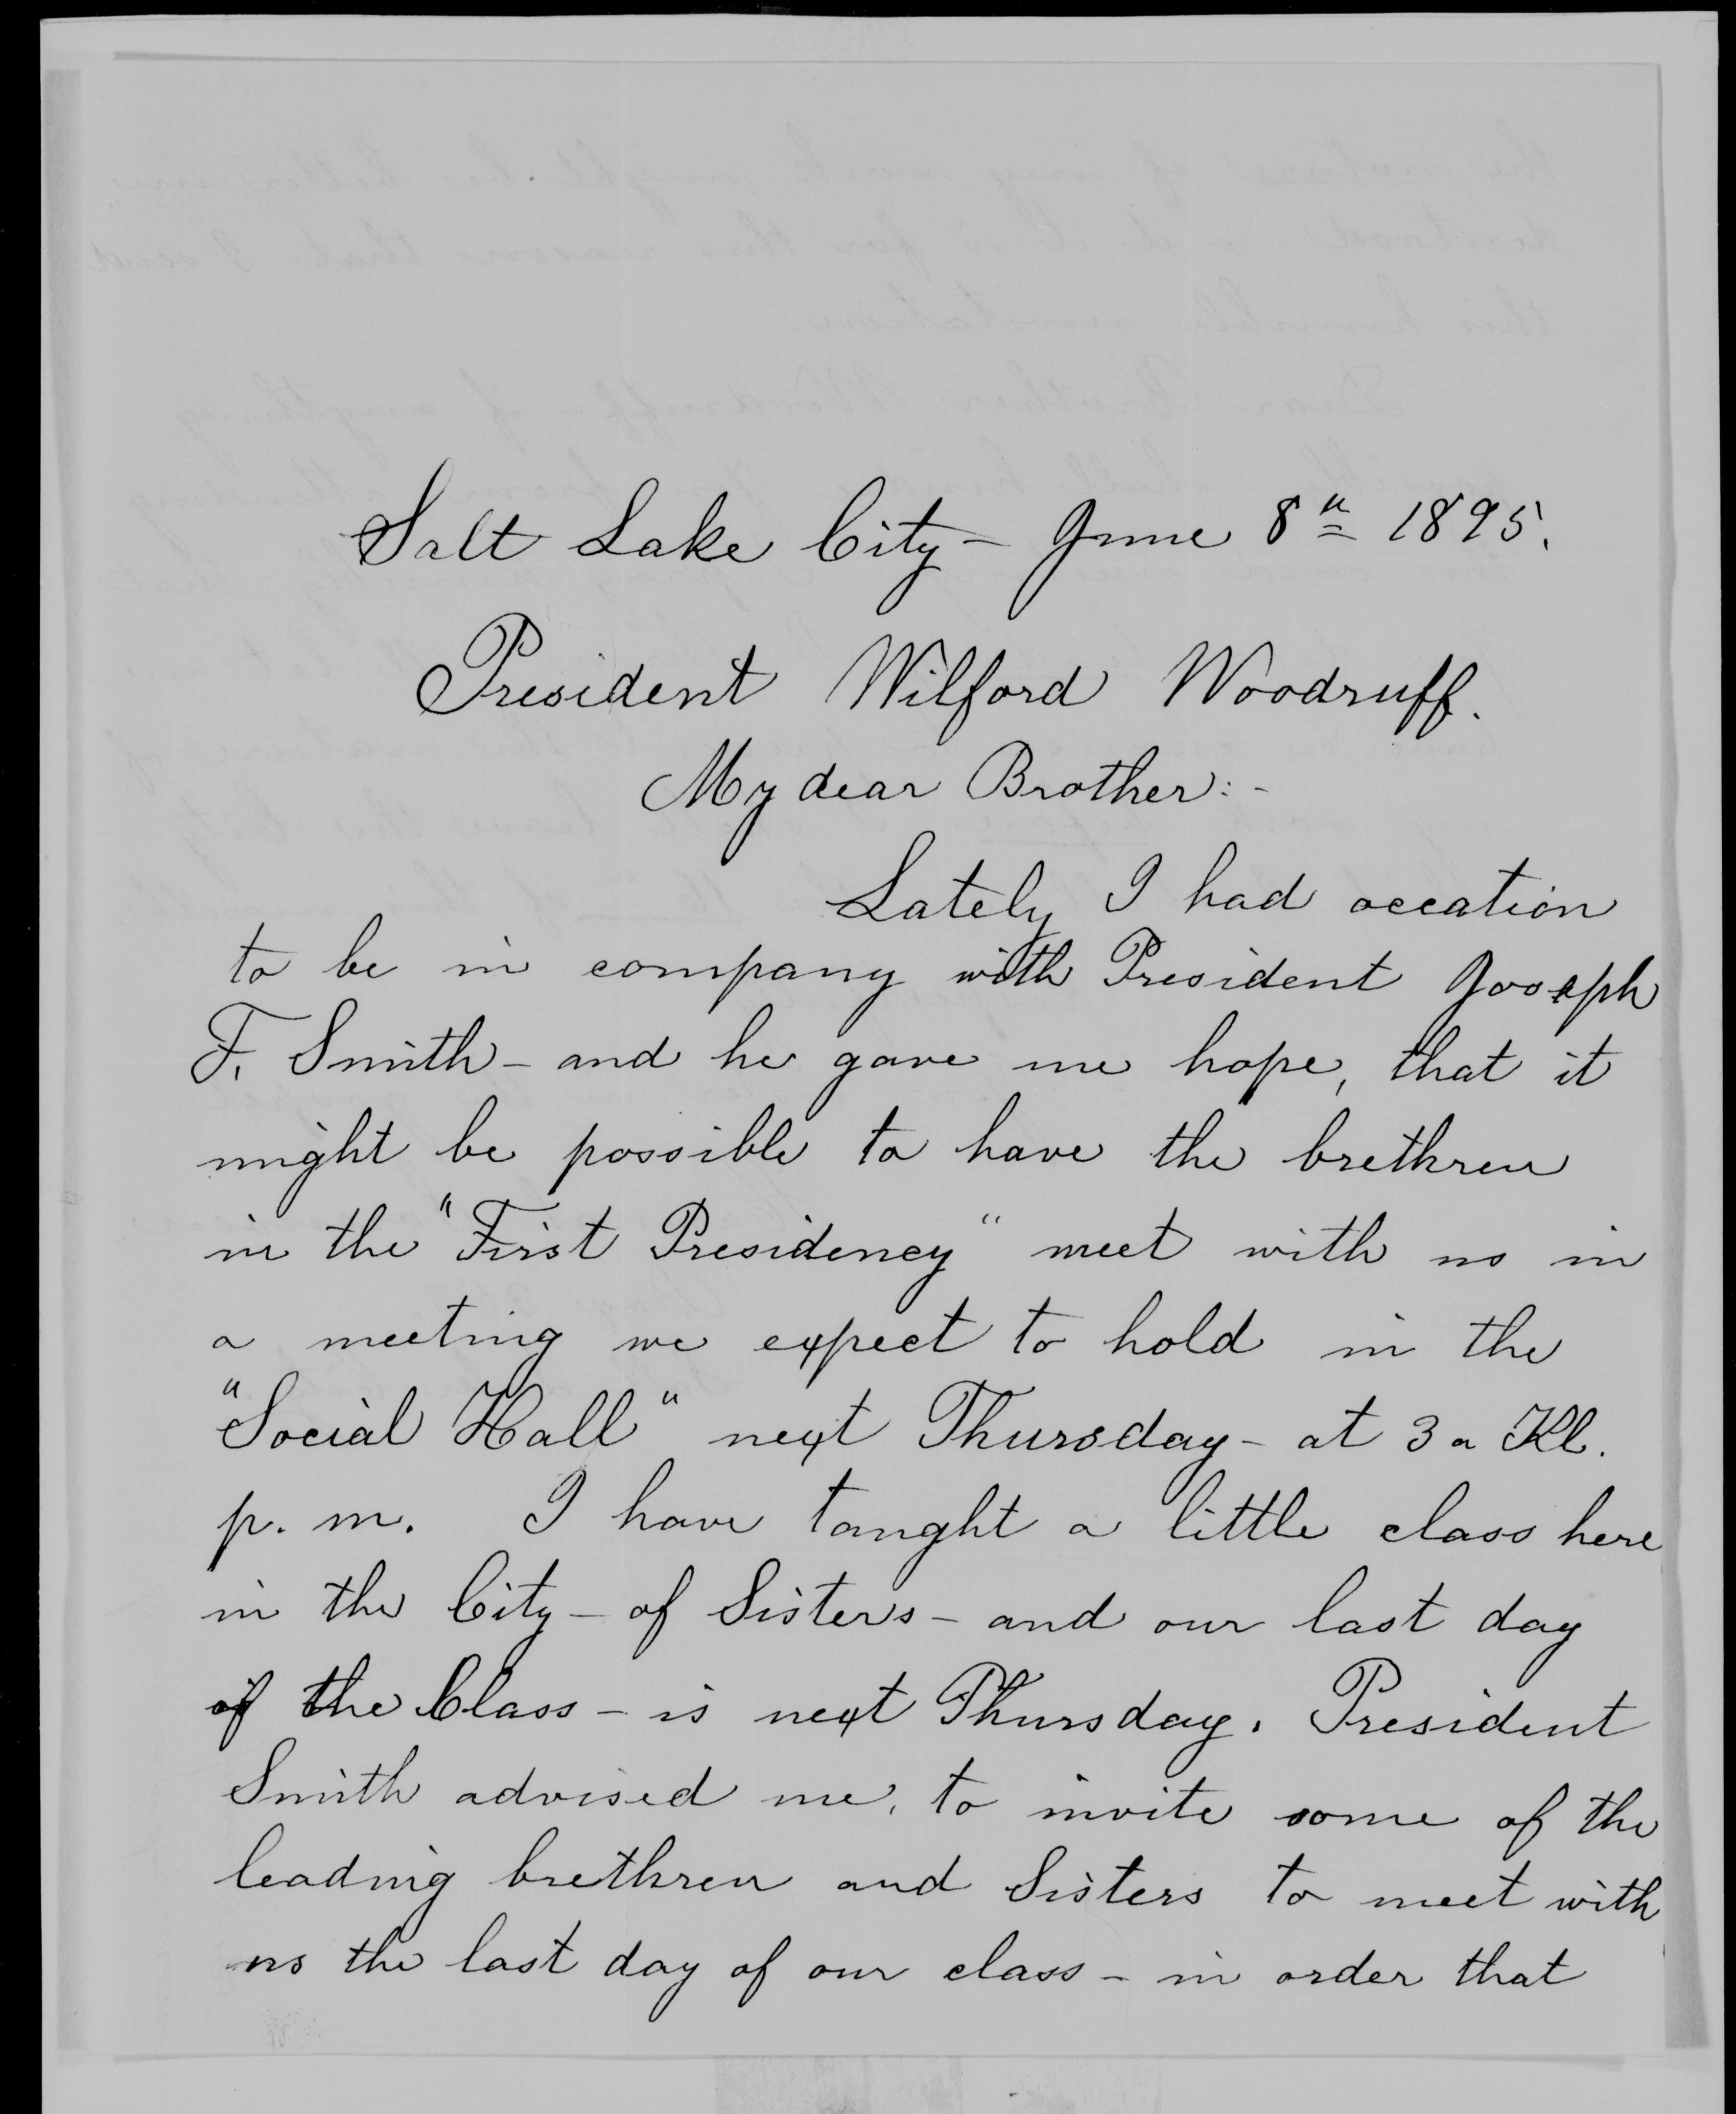 Salt Lake City - June 8th 1895.
President Wilford Woodruff.
My dear Brother:-
Lately I had occation
to be in company with President Joseph
F. Smith - and he gave me hope, that it
might be possible to have the brethren
in the "First Presidency" meet with us in
a meeting we expect to hold in the
"Social Hall" next Thursday - at 3 o Kl.
p. m. I have taught a little class here
in the City - of Sisters - and our last day
of the Class - is next Thursday. President
Smith advised me, to invite some of the
leading brethren and Sisters to meet with
us the last day of our class - in order that